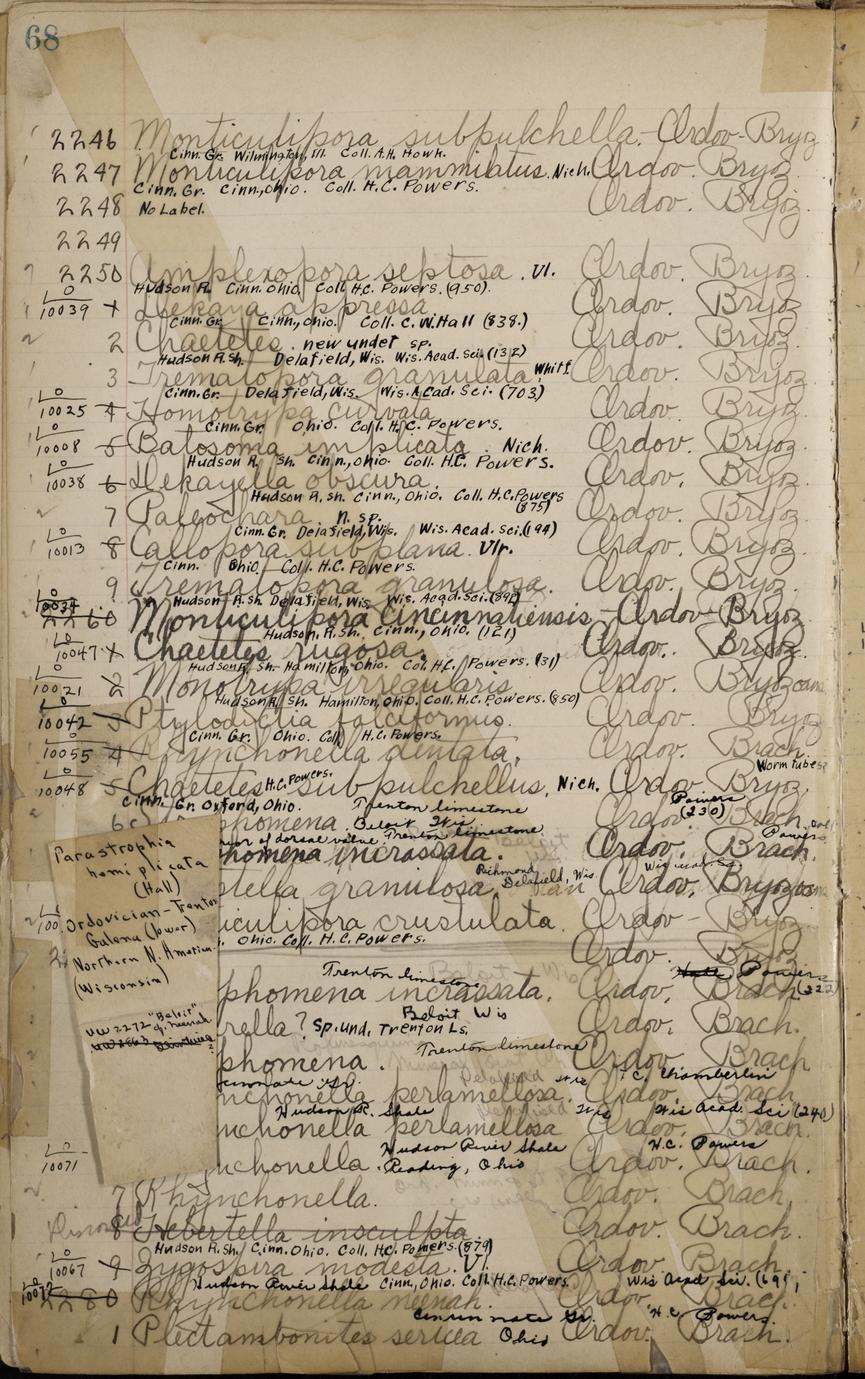 68
2246 Monticulipora subpulchella - Ordov - Bryoz
Cinn. Gr. Wilmington, Ill. Coll. A.H. Howk.
2247 Monticulipora mammulatus. Nich. Ordov. Bryoz.
Cinn. Gr. Cinn., Ohio. Coll. H.C. Powers.
2248 No Label. Ordov. Bryoz.
2249
2250 Amplexopora septosa. Ul. Ordov. Bryoz.
Hudson R. Cinn. Ohio. Coll. H.C. Powers. (950).
LO 10039 1 Dekayia appressa. Ordov. Bryoz.
Cinn. Gr. Cinn., Ohio. Coll. C.W. Hall (838.)
2 Chaetetes. new undet sp. Ordov. Bryoz.
Hudson R. Sh. Delafield, Wis. Wis. Acad. Sci. (132)
3 Trematopora granulata, Whitf. Ordov. Bryoz.
Cinn. Gr. Delafield, Wis. Wis. Acad. Sci. (703)
LO 10025 4 Homotrypa curvata Ordov. Bryoz.
Cinn. Gr. Ohio. Coll. H.C. Powers.
LO 10008 5 Batosoma implicata. Nich. Ordov. Bryoz.
Hudson R. Sh. Cinn., Ohio. Coll. H.C. Powers.
LO 10038 6 Dekayella obscura. Ordov. Bryoz.
Hudson R. sh. Cinn., Ohio. Coll. H.C. Powers (875)
7 Paleochara n. sp. Ordov. Bryoz.
Cinn. Gr. Delafield, Wis. Wis. Acad. Sci. (194)
LO 10013 8 Callopora subplana. Ulr. Ordov. Bryoz.
Cinn. Ohio. Coll. H.C. Powers.
9 Trematopora granulosa. Ordov. Bryoz.
Hudson R. sh. Delafield, Wis. Wis. Acad. Sci.
2260 Monticulipora Cincinnatiensis - Ordov - Bryoz
Hudson. R. sh. Cinn., Ohio. (121)
LO 10047 1 Chaetetes rugosa. Ordov. Bryoz.
Hudson R. Sh. Hamilton, Ohio. Col. H.C. Powers. (31)
LO 10021 2 Monotrypa irregularis Ordov. Bryozoans
Hudson R. Sh. Hamilton, Ohio. Col. H.C. Powers. (850)
LO 10042 3 Ptylodictia falciformis. Ordov. Bryoz
Cinn. Gr. Ohio. Coll H.C. Powers.
LO 10055 4 Rhynchonella dentata, Ordov. Brach.
Worm tubes?
LO 10048 5 Chaetetes H.C. Powers. subpulchellus, Nich. Ordov Bryoz.
Cinn. Gr. Oxford, Ohio. Trenton limestone Powers (230)
6 phomena. Beloit Wis Ordov. Brach.
of dorsal valve Trenton limestone Powers
phomena incrassata. Ordov. Brach.
Richmond Delafield, Wis
stella granulosa Ordov, Bryozoans
iculipora crustulata. Ordov - Bryoz
Ohio. Coll. H.C. Powers. Ordov. Bryoz
Trenton limestone Powers (222)
phomena incrassata. Ordov, Brach
Beloit Wis
rella? Sp. Und. Trenton Ls. Ordov, Brach.
Trenton limestone
phomena. Ordov. Brach
Wis T.C. Chamberlin
nchonella perlamellosa. Ordov. Brach
Hudson R. Shale Wis Wis Acad. Sci (240)
nchonella perlamellosa Ordov. Brach.
Hudson River Shale H.C. Powers
LO 10071 nchonella. Reading, Ohio Ordov. Brach.
7 Rhynchonella. Ordov. Brach.
8 Hebertella insculpta Ordov. Brach.
Hudson R. Sh. Cinn. Ohio. Coll. H.C. Powers. (879)
LO 10067 9 Zygospira modesta. Ordov. Brach.
Hudson River Shale Cinn., Ohio. Coll. H.C. Powers. Wis Acad Sci. (691)
2280 Rhynchonella neenah. Ordov. Brach.
Cincinnati Gr. H.C. Powers.
1 Plectambonites sericea Ohio Ordov. Brach.
Parastrophia
hemiplicata
(Hall)
Ordovician - Trenton
Galena (lower)
Northern N. America.
(Wisconsin)
UW 2272 "Beloit"